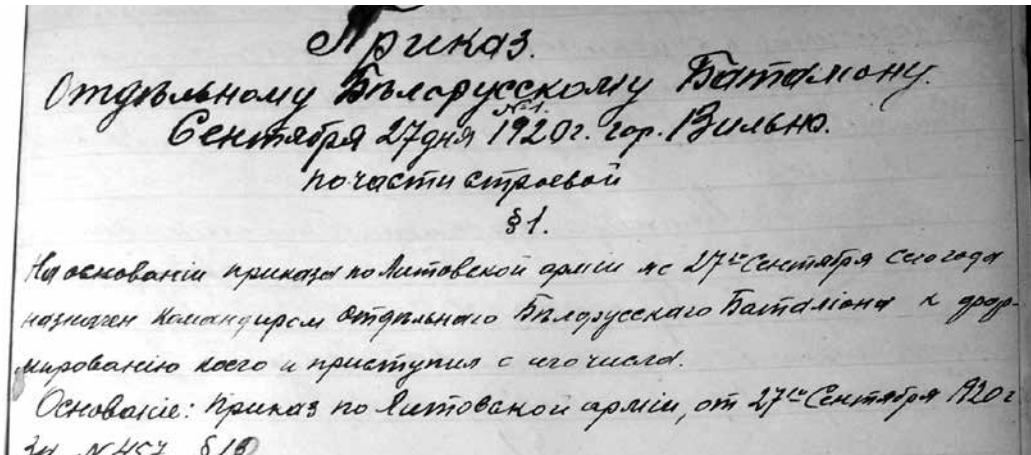 Приказ.
Отдѣльному Бѣлорусскому Баталиону.
№1.
Сентября 27 дня 1920г. гор. Вильно.
по части строевой
§1.
На основаніи приказа по Литовской арміи яс 27го Сентября сего года
назначен Командиром Отдѣльнаго Бѣлорусскаго Баталіона к фор-
мированію коего и приступил с его числа.
Основаніе: Приказ по Литовской арміи, от 27го Сентября 1920г
За №457 §18